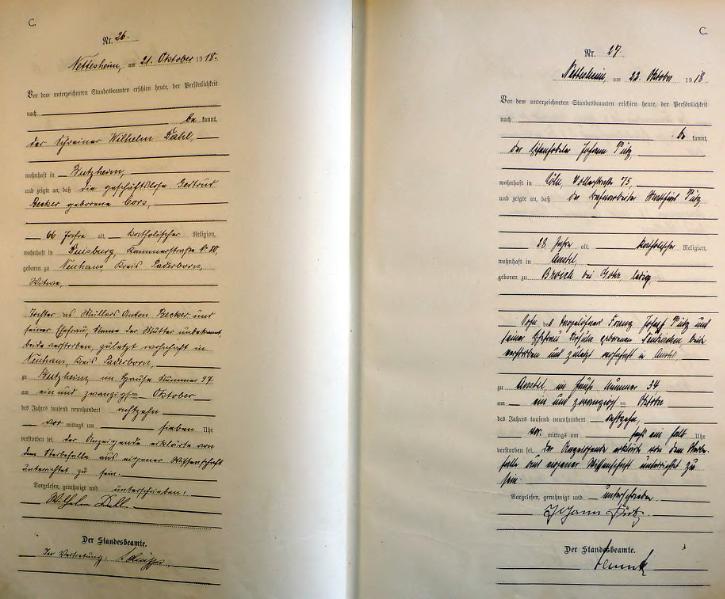 C.
Nr. 26.
Nettesheim, am 21. Oktober 1918.
Vor dem unterzeichneten Standesbeamten erschien heute, der Persönlichkeit
nach
be kannt,
der Schreiner Wilhelm
wohnhaft in Butzheim,
und zeigte an, daß die geschäftslose Gertrud
Becker geborene
66 Jahre alt, katholischer Religion,
wohnhaft in Duisburg,
geboren zu Neuhaus, Kreis Paderborn,
Witwe,
Tochter des Anton Becker und
seiner Ehefrau, Name der Mutter unbekannt
beide verstorben, zuletzt wohnhaft in
Neuhaus, Kreis Paderborn,
zu Butzheim, im Hause Nummer
am ein und zwanzigsten Oktober
des Jahres tausend neunhundert achtzehn
vor mittags um sieben Uhr
verstorben sei. Der Anzeigende erklärte von
dem Sterbefalle aus eigener Wissenschaft
unterrichtet zu sein.
Vorgelesen, genehmigt und unterschrieben:
Wilhelm
Der Standesbeamte.
In Vertretung:
C.
Nr. 27
Nettesheim, am 22. Oktober 1918
Vor dem unterzeichneten Standesbeamten erschien heute, der Persönlichkeit
nach
be kannt,
der Johann Pütz,
wohnhaft in Cöln, 75,
und zeigte an, daß der Pütz
28 Jahre alt, katholischer Religion,
wohnhaft in Anstel,
geboren zu Broich bei ledig
Sohn des Franz Josef Pütz und
seiner Ehefrau geborenen beide
verstorben und zuletzt wohnhaft in Anstel
zu Anstel, im Hause Nummer 34
am ein und zwanzigsten Oktober
des Jahres tausend neunhundert achtzehn,
vor mittags um Uhr
verstorben sei. Der Anzeigende erklärte von dem Sterbe-
falle aus eigener Wissenschaft unterrichtet zu
sein
Vorgelesen, genehmigt und unterschrieben
Johann Pütz.
Der Standesbeamte.